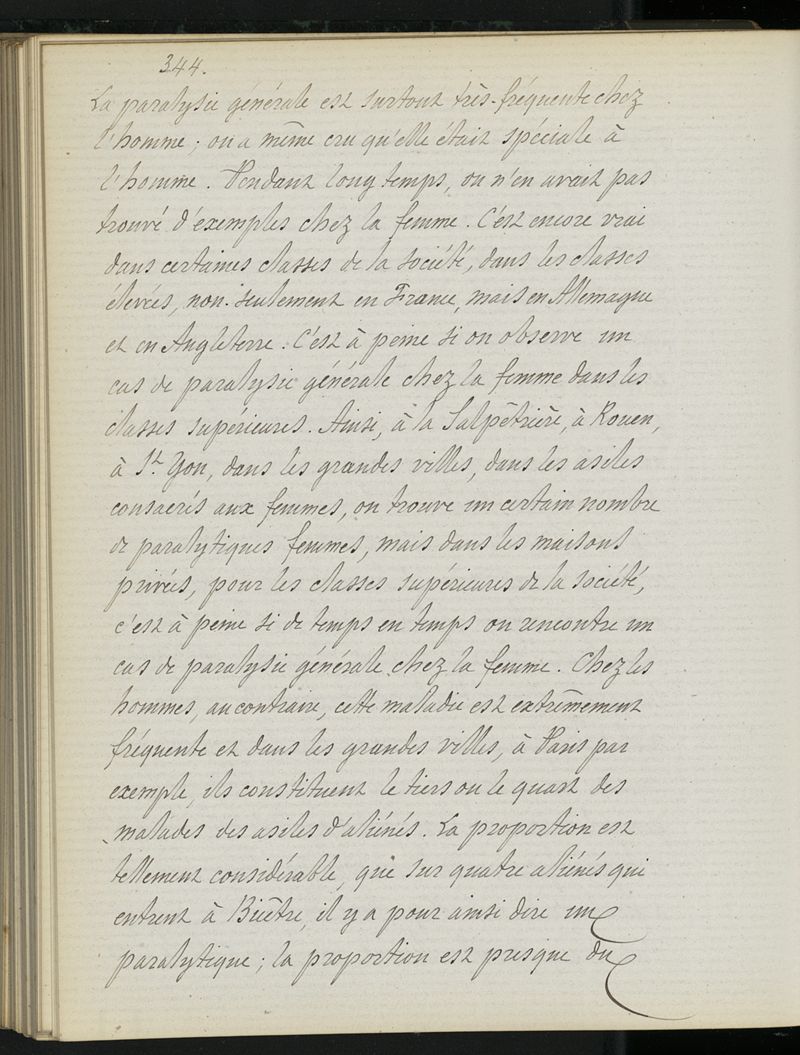 344.
La paralysie générale est surtout très-fréquente chez
l'homme ; on a même cru qu'elle était spéciale à
l'homme. Pendant long temps, on n'en avait pas
trouvé d'exemples chez la femme. C'est encore vrai
dans certaines classes de la société, dans les classes
élevées, non-seulement en France, mais en Allemagne
et en Angleterre. C'est à peine si on observe un
cas de paralysie générale chez la femme dans les
classes supérieures. Ainsi, à la Salpêtrière, à Rouen,
à St. Yon, dans les grandes villes, dans les asiles
consacrés aux femmes, on trouve un certain nombre
de paralytiques femmes, mais dans les maisons
privées, pour les classes supérieures de la société,
c'est à peine si de temps en temps on rencontre un
cas de paralysie générale chez la femme. Chez les
hommes, au contraire, cette maladie est extrêmement
fréquente et dans les grandes villes, à Paris par
exemple, ils constituent le tiers ou le quart des
malades des asiles d'aliénés. La proportion est
tellement considérable, que sur quatre aliénés qui
entrent à Bicêtre, il y a pour ainsi dire un
paralytique ; la proportion est presque du